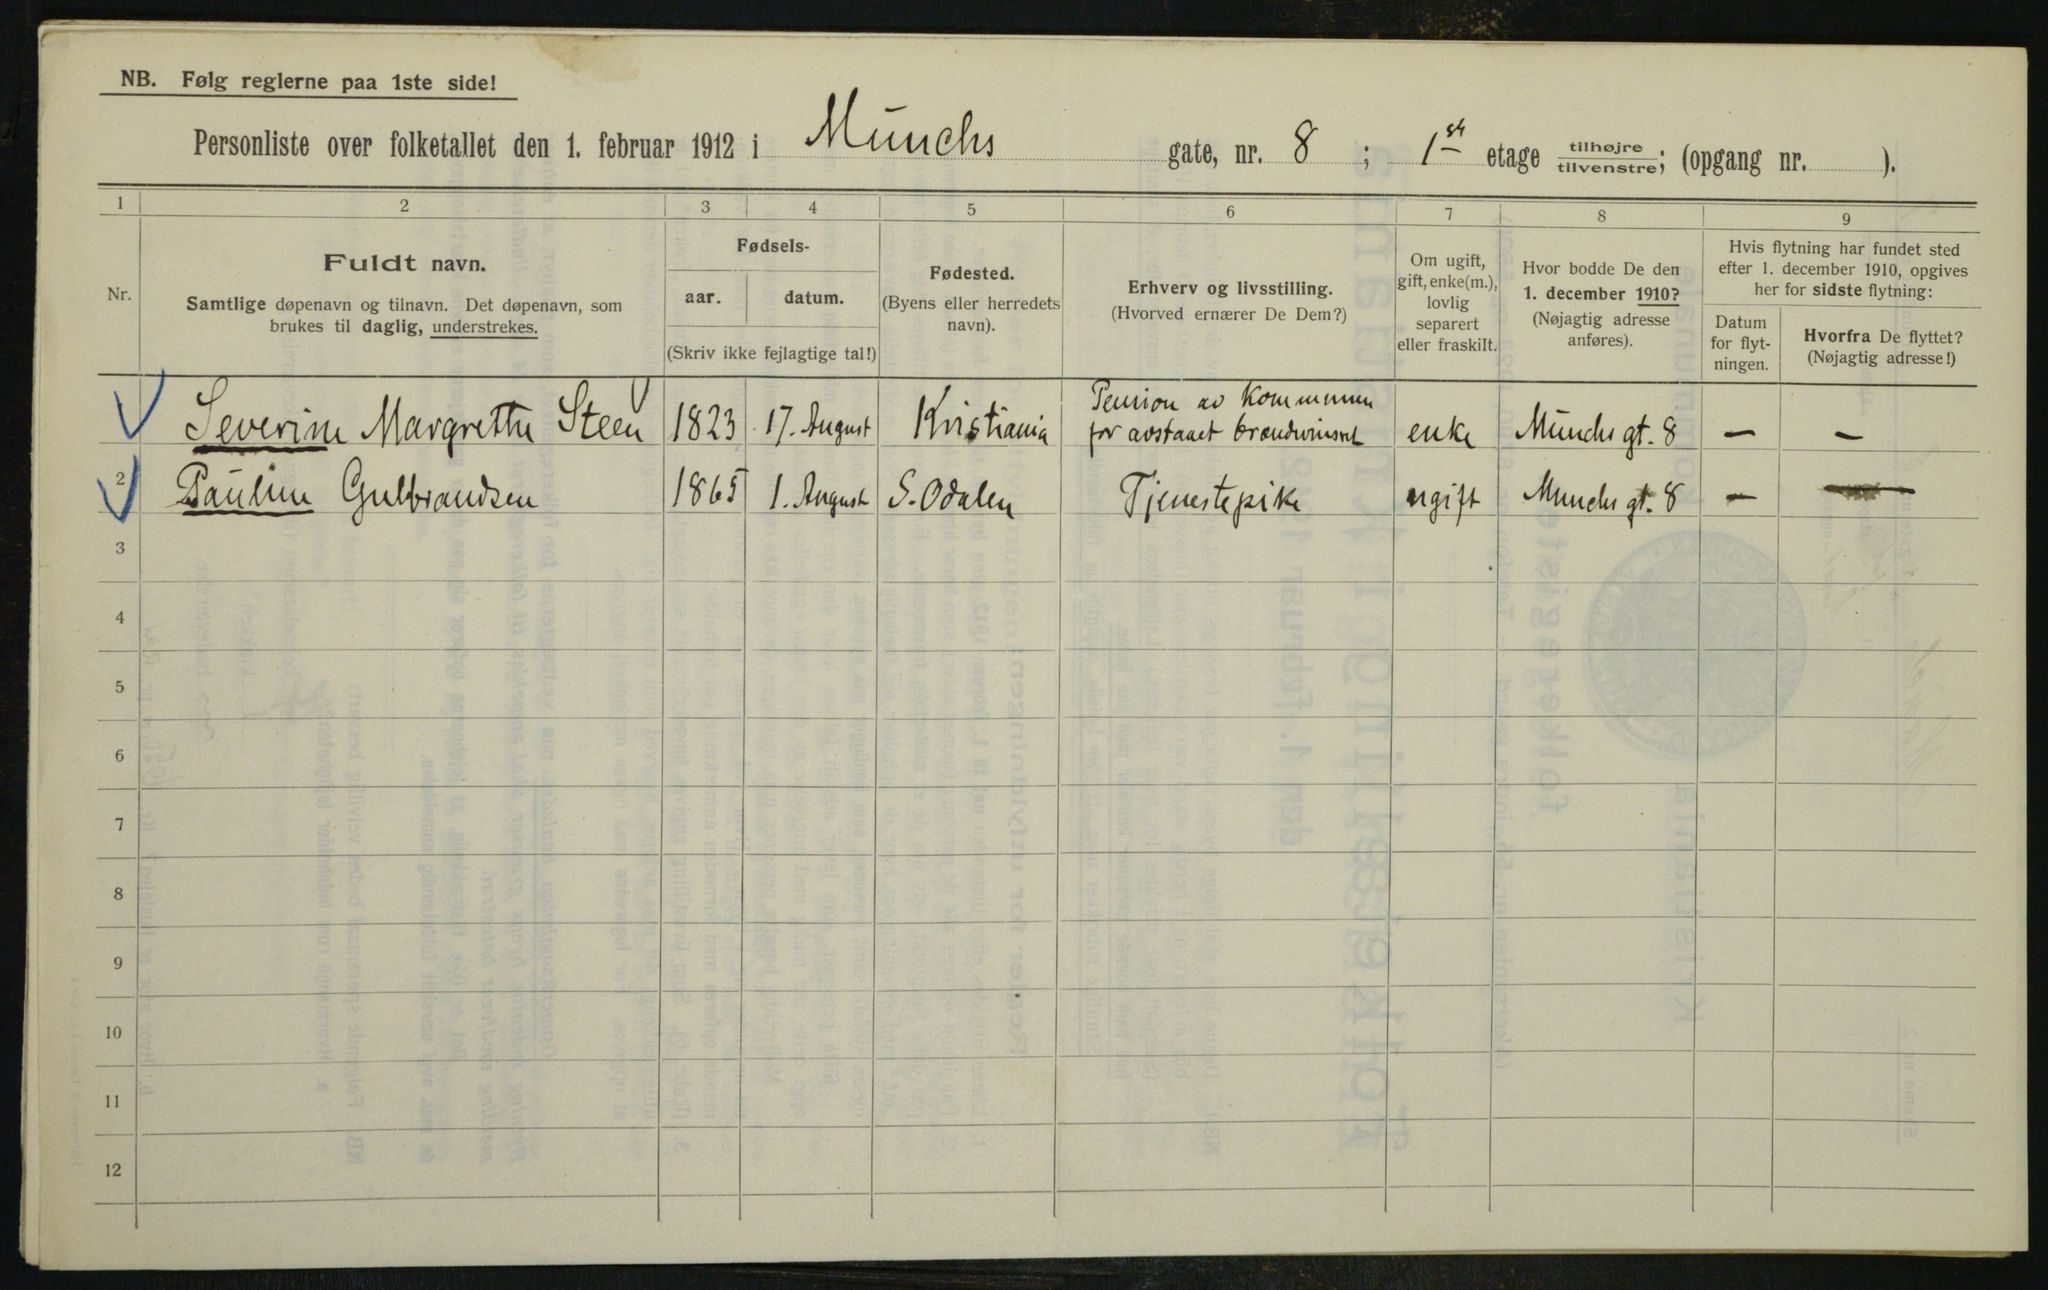 NB. Følg reglerne paa 1ste side!
Personliste over folketallet den 1. februar 1912 i Münchs gate, nr. 8 ; 1st etage tilhøjre tilvenstre; (opgang nr. ).
1 2 3 4 5 6 7 8 9
Nr.
Fuldt navn.
Samtlige døpenavn og tilnavn. Det døpenavn, som
brukes til daglig, understrekes.
Fødsels-
aar. datum.
(Skriv ikke fejlagtige tal!)
Fødested.
(Byens eller herredets
navn).
Erhverv og livsstilling.
(Hvorved ernærer De Dem?)
Om ugift,
gift, enke(m.),
lovlig
separert
eller fraskilt.
Hvor bodde De den
1. december 1910?
(Nøjagtig adresse
anføres).
Hvis flytning har fundet sted
efter 1. december 1910, opgives
her for sidste flytning:
Datum
for flyt-
ningen.
Hvorfra De flyttet?
(Nøjagtig adresse!)
Severine Margrethe Steen 1823 17. August Kristiania Pension av Kommunen
for avstaaet enke Münchs gt. 8 — —
2 Pauline Gulbrandsen 1865 1. August S. Odalen Tjenestepike ugift Münchs gt. 8 — —
3
4
5
6
7
8
9
10
11
12